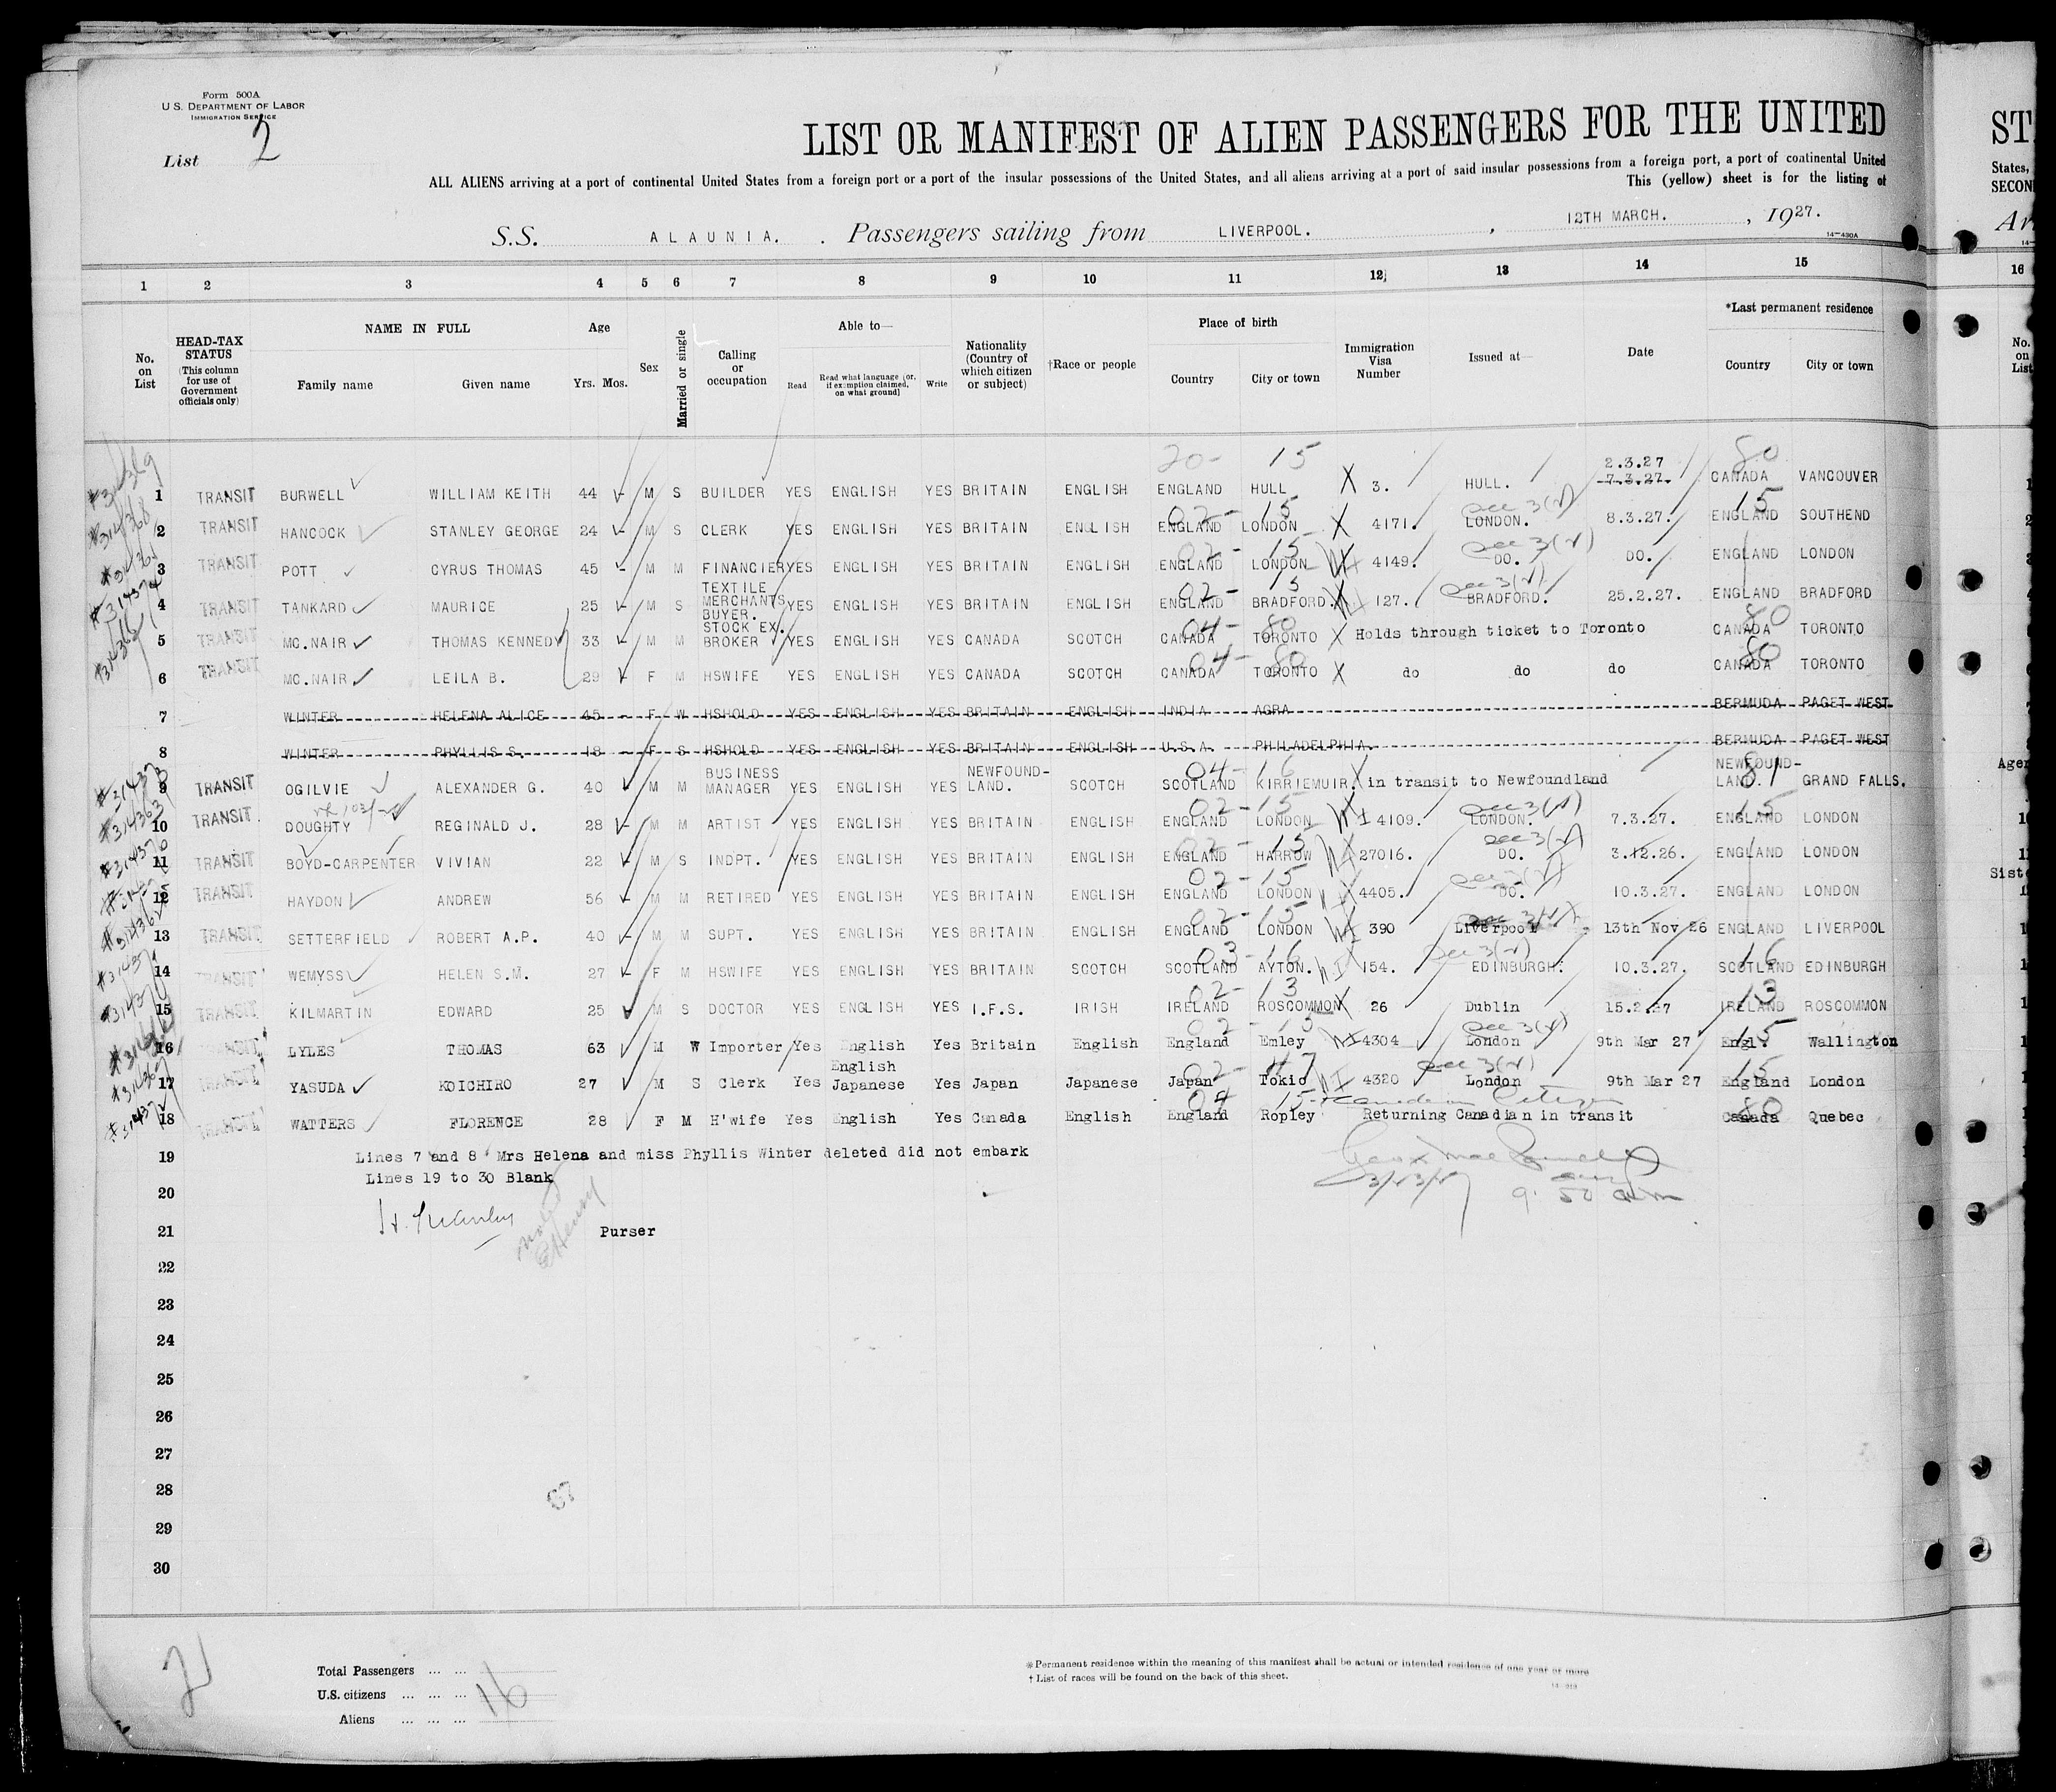 Form 500A
U.S. DEPARTMENT OF LABOR
IMMIGRATION SERVICE
List 2
LIST OR MANIFEST OF ALIEN PASSENGERS FOR THE UNITED
ALL ALIENS arriving at a port of continental United States from a foreign port or a port of the insular possessions of the United States, and all aliens arriving at a port of said insular possessions from a foreign port, a port of continental United
This (yellow) sheet is for the listing of
S.S. ALAUNIA. Passengers sailing from LIVERPOOL. , 12TH MARCH. , 1927.
14-430A
1 2 3 4 5 6 7 8 9 10 11 12 13 14 15
No. on List
HEAD-TAX STATUS (This column for use of Government officials only)
NAME IN FULL
Family name Given name
Age Yrs. Mos.
Sex
Married or single
Calling or occupation
Able to—
Read Read what language (or, if exemption claimed, on what ground) Write
Nationality (Country of which citizen or subject)
†Race or people
Place of birth
Country City or town
Immigration Visa Number
Issued at—
Date
*Last permanent residence
Country City or town
20- 15 80
1 TRANSIT BURWELL WILLIAM KEITH 44 M S BUILDER YES ENGLISH YES BRITAIN ENGLISH ENGLAND HULL 3. HULL. 2.3.27 7.3.27. CANADA VANCOUVER
02- 15 15
2 TRANSIT HANCOCK STANLEY GEORGE 24 M S CLERK YES ENGLISH YES BRITAIN ENGLISH ENGLAND LONDON 4171. LONDON. 8.3.27. ENGLAND SOUTHEND
02- 15
3 TRANSIT POTT CYRUS THOMAS 45 M M FINANCIER YES ENGLISH YES BRITAIN ENGLISH ENGLAND LONDON 4149. DO. DO. ENGLAND LONDON
02- 15
4 TRANSIT TANKARD MAURICE 25 M S TEXTILE MERCHANTS BUYER. YES ENGLISH YES BRITAIN ENGLISH ENGLAND BRADFORD. 127. BRADFORD. 25.2.27. ENGLAND BRADFORD
04- 80 80
5 TRANSIT MC.NAIR THOMAS KENNEDY 33 M M STOCK EX. BROKER YES ENGLISH YES CANADA SCOTCH CANADA TORONTO Holds through ticket to Toronto CANADA TORONTO
04- 80 80
6 TRANSIT MC.NAIR LEILA B. 29 F M HSWIFE YES ENGLISH YES CANADA SCOTCH CANADA TORONTO do do do CANADA TORONTO
7 WINTER HELENA ALICE 45 F W HSHOLD YES ENGLISH YES BRITAIN ENGLISH INDIA AGRA BERMUDA PAGET WEST
8 WINTER PHYLLIS S. 18 F S HSHOLD YES ENGLISH YES BRITAIN ENGLISH U.S.A. PHILADELPHIA. BERMUDA PAGET WEST
04- 16 81
9 TRANSIT OGILVIE ALEXANDER G. 40 M M BUSINESS MANAGER YES ENGLISH YES NEWFOUND-LAND. SCOTCH SCOTLAND KIRRIEMUIR. in transit to Newfoundland NEWFOUND-LAND. GRAND FALLS.
02- 15 15
10 TRANSIT DOUGHTY REGINALD J. 28 M M ARTIST YES ENGLISH YES BRITAIN ENGLISH ENGLAND LONDON 4109. LONDON. 7.3.27. ENGLAND LONDON
02- 15
11 TRANSIT BOYD-CARPENTER VIVIAN 22 M S INDPT. YES ENGLISH YES BRITAIN ENGLISH ENGLAND HARROW 27016. DO. 3.12.26. ENGLAND LONDON
02- 15
12 TRANSIT HAYDON ANDREW 56 M M RETIRED YES ENGLISH YES BRITAIN ENGLISH ENGLAND LONDON 4405. DO. 10.3.27. ENGLAND LONDON
02- 15
13 TRANSIT SETTERFIELD ROBERT A.P. 40 M M SUPT. YES ENGLISH YES BRITAIN ENGLISH ENGLAND LONDON 390 Liverpool 13th Nov 26 ENGLAND LIVERPOOL
03- 16 16
14 TRANSIT WEMYSS HELEN S.M. 27 F M HSWIFE YES ENGLISH YES BRITAIN SCOTCH SCOTLAND AYTON. 154. EDINBURGH. 10.3.27. SCOTLAND EDINBURGH
02- 13 13
15 TRANSIT KILMARTIN EDWARD 25 M S DOCTOR YES ENGLISH YES I.F.S. IRISH IRELAND ROSCOMMON 26 Dublin 15.2.27 IRELAND ROSCOMMON
02- 15 15
16 TRANSIT LYLES THOMAS 63 M W Importer Yes English Yes Britain English England Emley 4304 London 9th Mar 27 Engl. Wallington
02- 47 15
17 TRANSIT YASUDA KOICHIRO 27 M S Clerk Yes English Japanese Yes Japan Japanese Japan Tokio 4320 London 9th Mar 27 England London
04 15 Canadian Citizen 80
18 TRANSIT WATTERS FLORENCE 28 F M H'wife Yes English Yes Canada English England Ropley Returning Canadian in transit Canada Quebec
19 Lines 7 and 8 Mrs Helena and miss Phyllis Winter deleted did not embark
Lines 19 to 30 Blank
20 9.50 am
21 Purser
22
23
24
25
26
27
28
29
30
2
Total Passengers ... ...
U.S. citizens ... ... ... 16
Aliens ... ... ...
*Permanent residence within the meaning of this manifest shall be actual or intended residence of one year or more
† List of races will be found on the back of this sheet.
STA
States,
SECON
Ar
16
No. on List
Agen
Siste